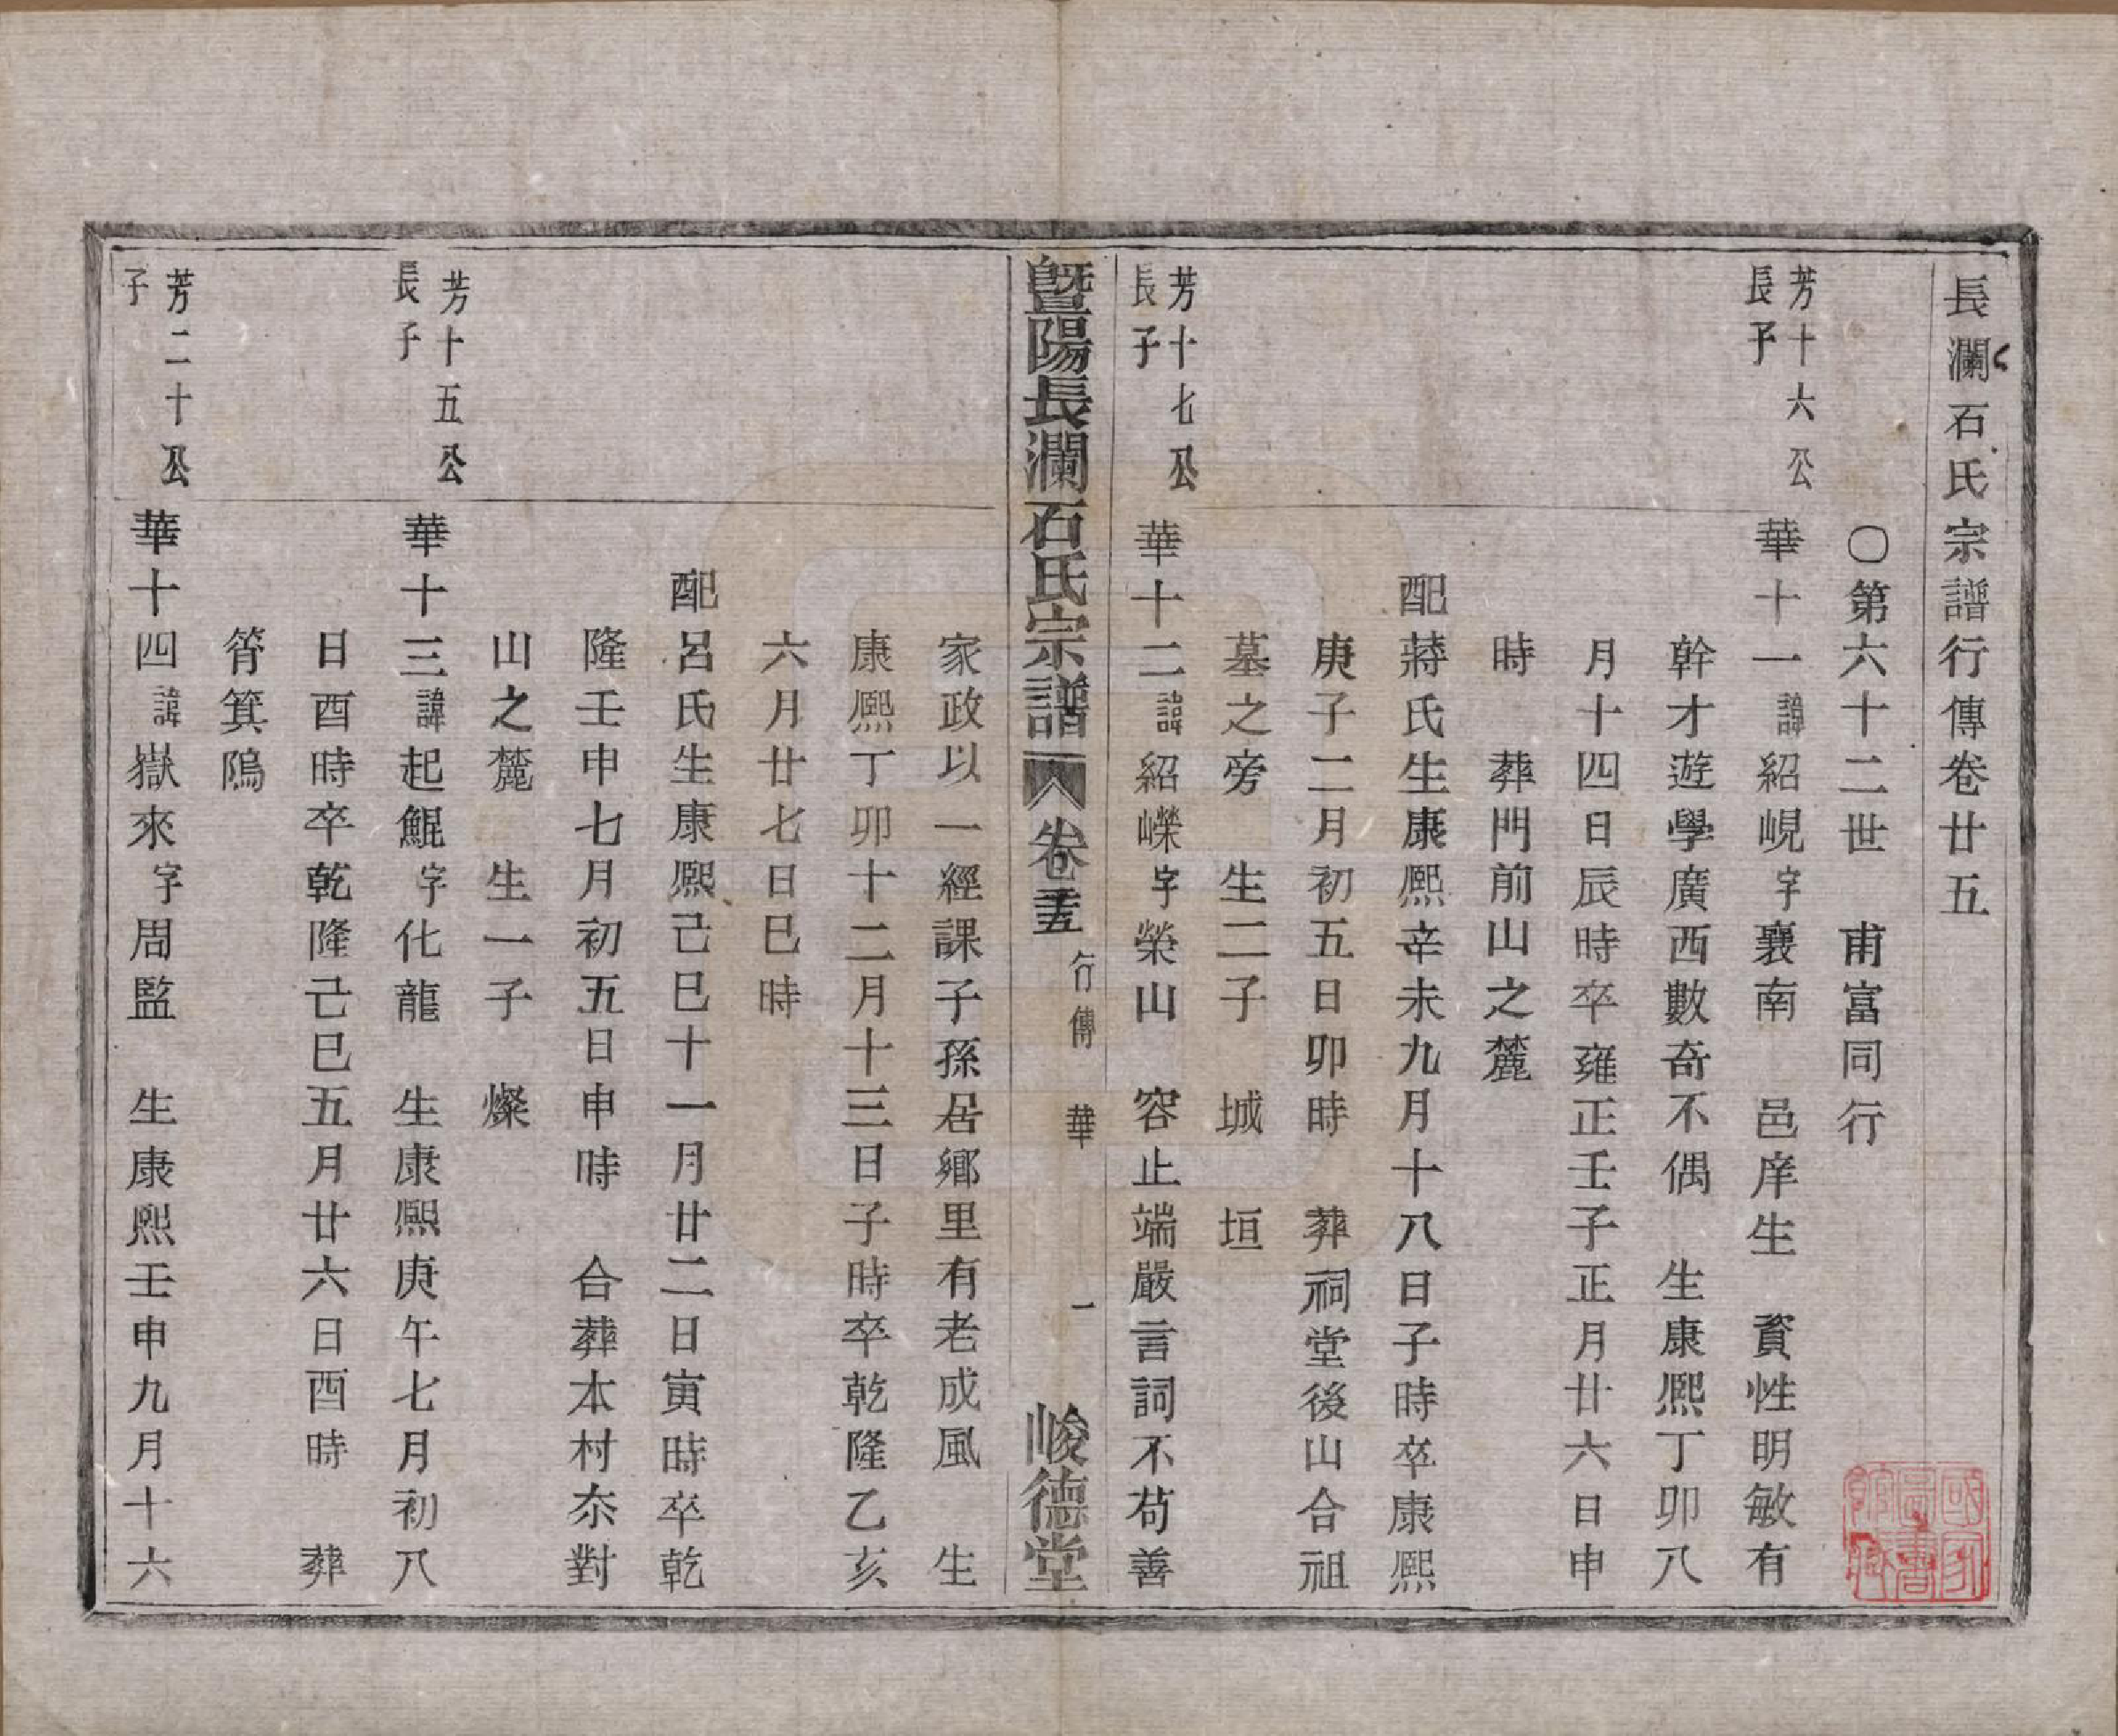 長瀾石氏宗譜行傳卷廿五
〇第六十二世　甫富同行
芳十六公
長子
華十一諱紹峴字襄南　邑庠生　資性明敏有
幹才遊學廣西數奇不偶　生康熙丁卯八
月十四日辰時卒雍正壬子正月廿六日申
時　葬門前山之麓
配蔣氏生康熙辛未九月十八日子時卒康熙
庚子二月初五日卯時　葬祠堂後山合祖
墓之旁　生二子　城　垣
芳十七公
長子
華十二諱紹嶸字榮山　容止端嚴言詞不苟善
暨陽長瀾石氏宗譜　卷二十五　行傳　華　一　峻德堂
家政以一經課子孫居鄉里有老成風　生
康熙丁卯十二月十三日子時卒乾隆乙亥
六月廿七日巳時
配呂氏生康熙己巳十一月廿二日寅時卒乾
隆壬申七月初五日申時　合葬本村夵對
山之麓　生一子　燦
芳十五公
長子
華十三諱起鯤字化龍　生康熙庚午七月初八
日酉時卒乾隆己巳五月廿六日酉時　葬
筲箕隖
芳二十公
子
華十四諱嶽來字周監　生康熙壬申九月十六